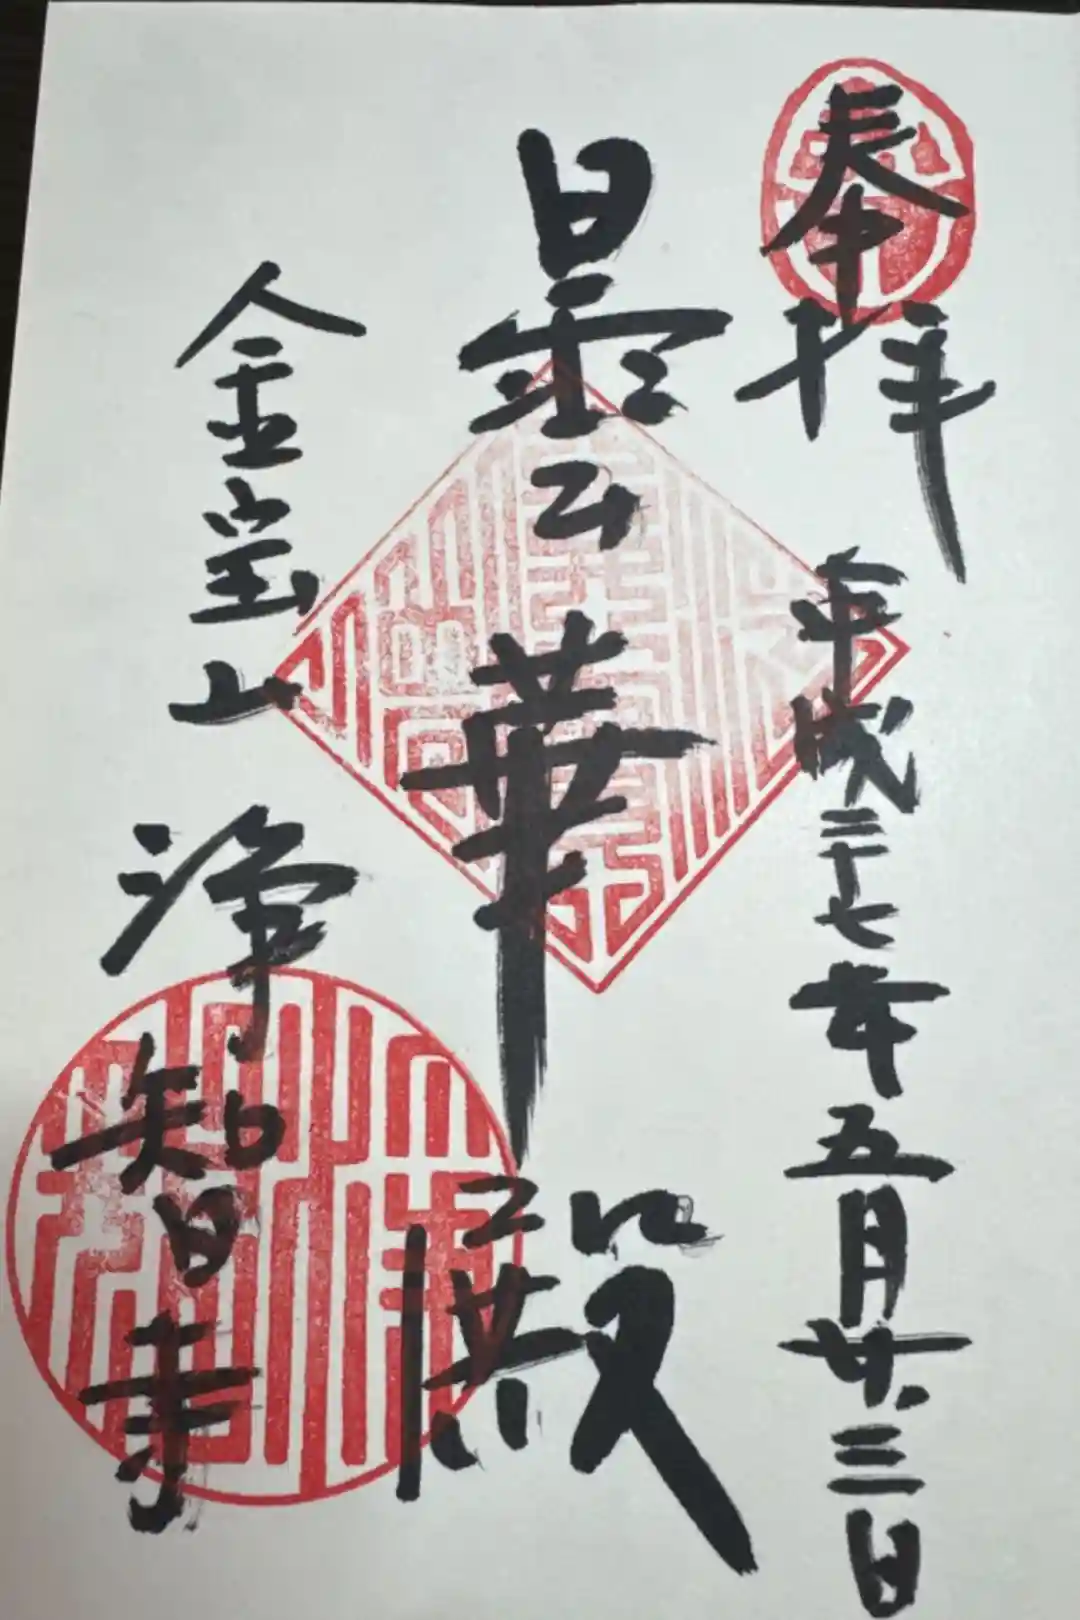 奉拝
平成二十七年五月廿三日
曇華殿
金宝山
浄智寺